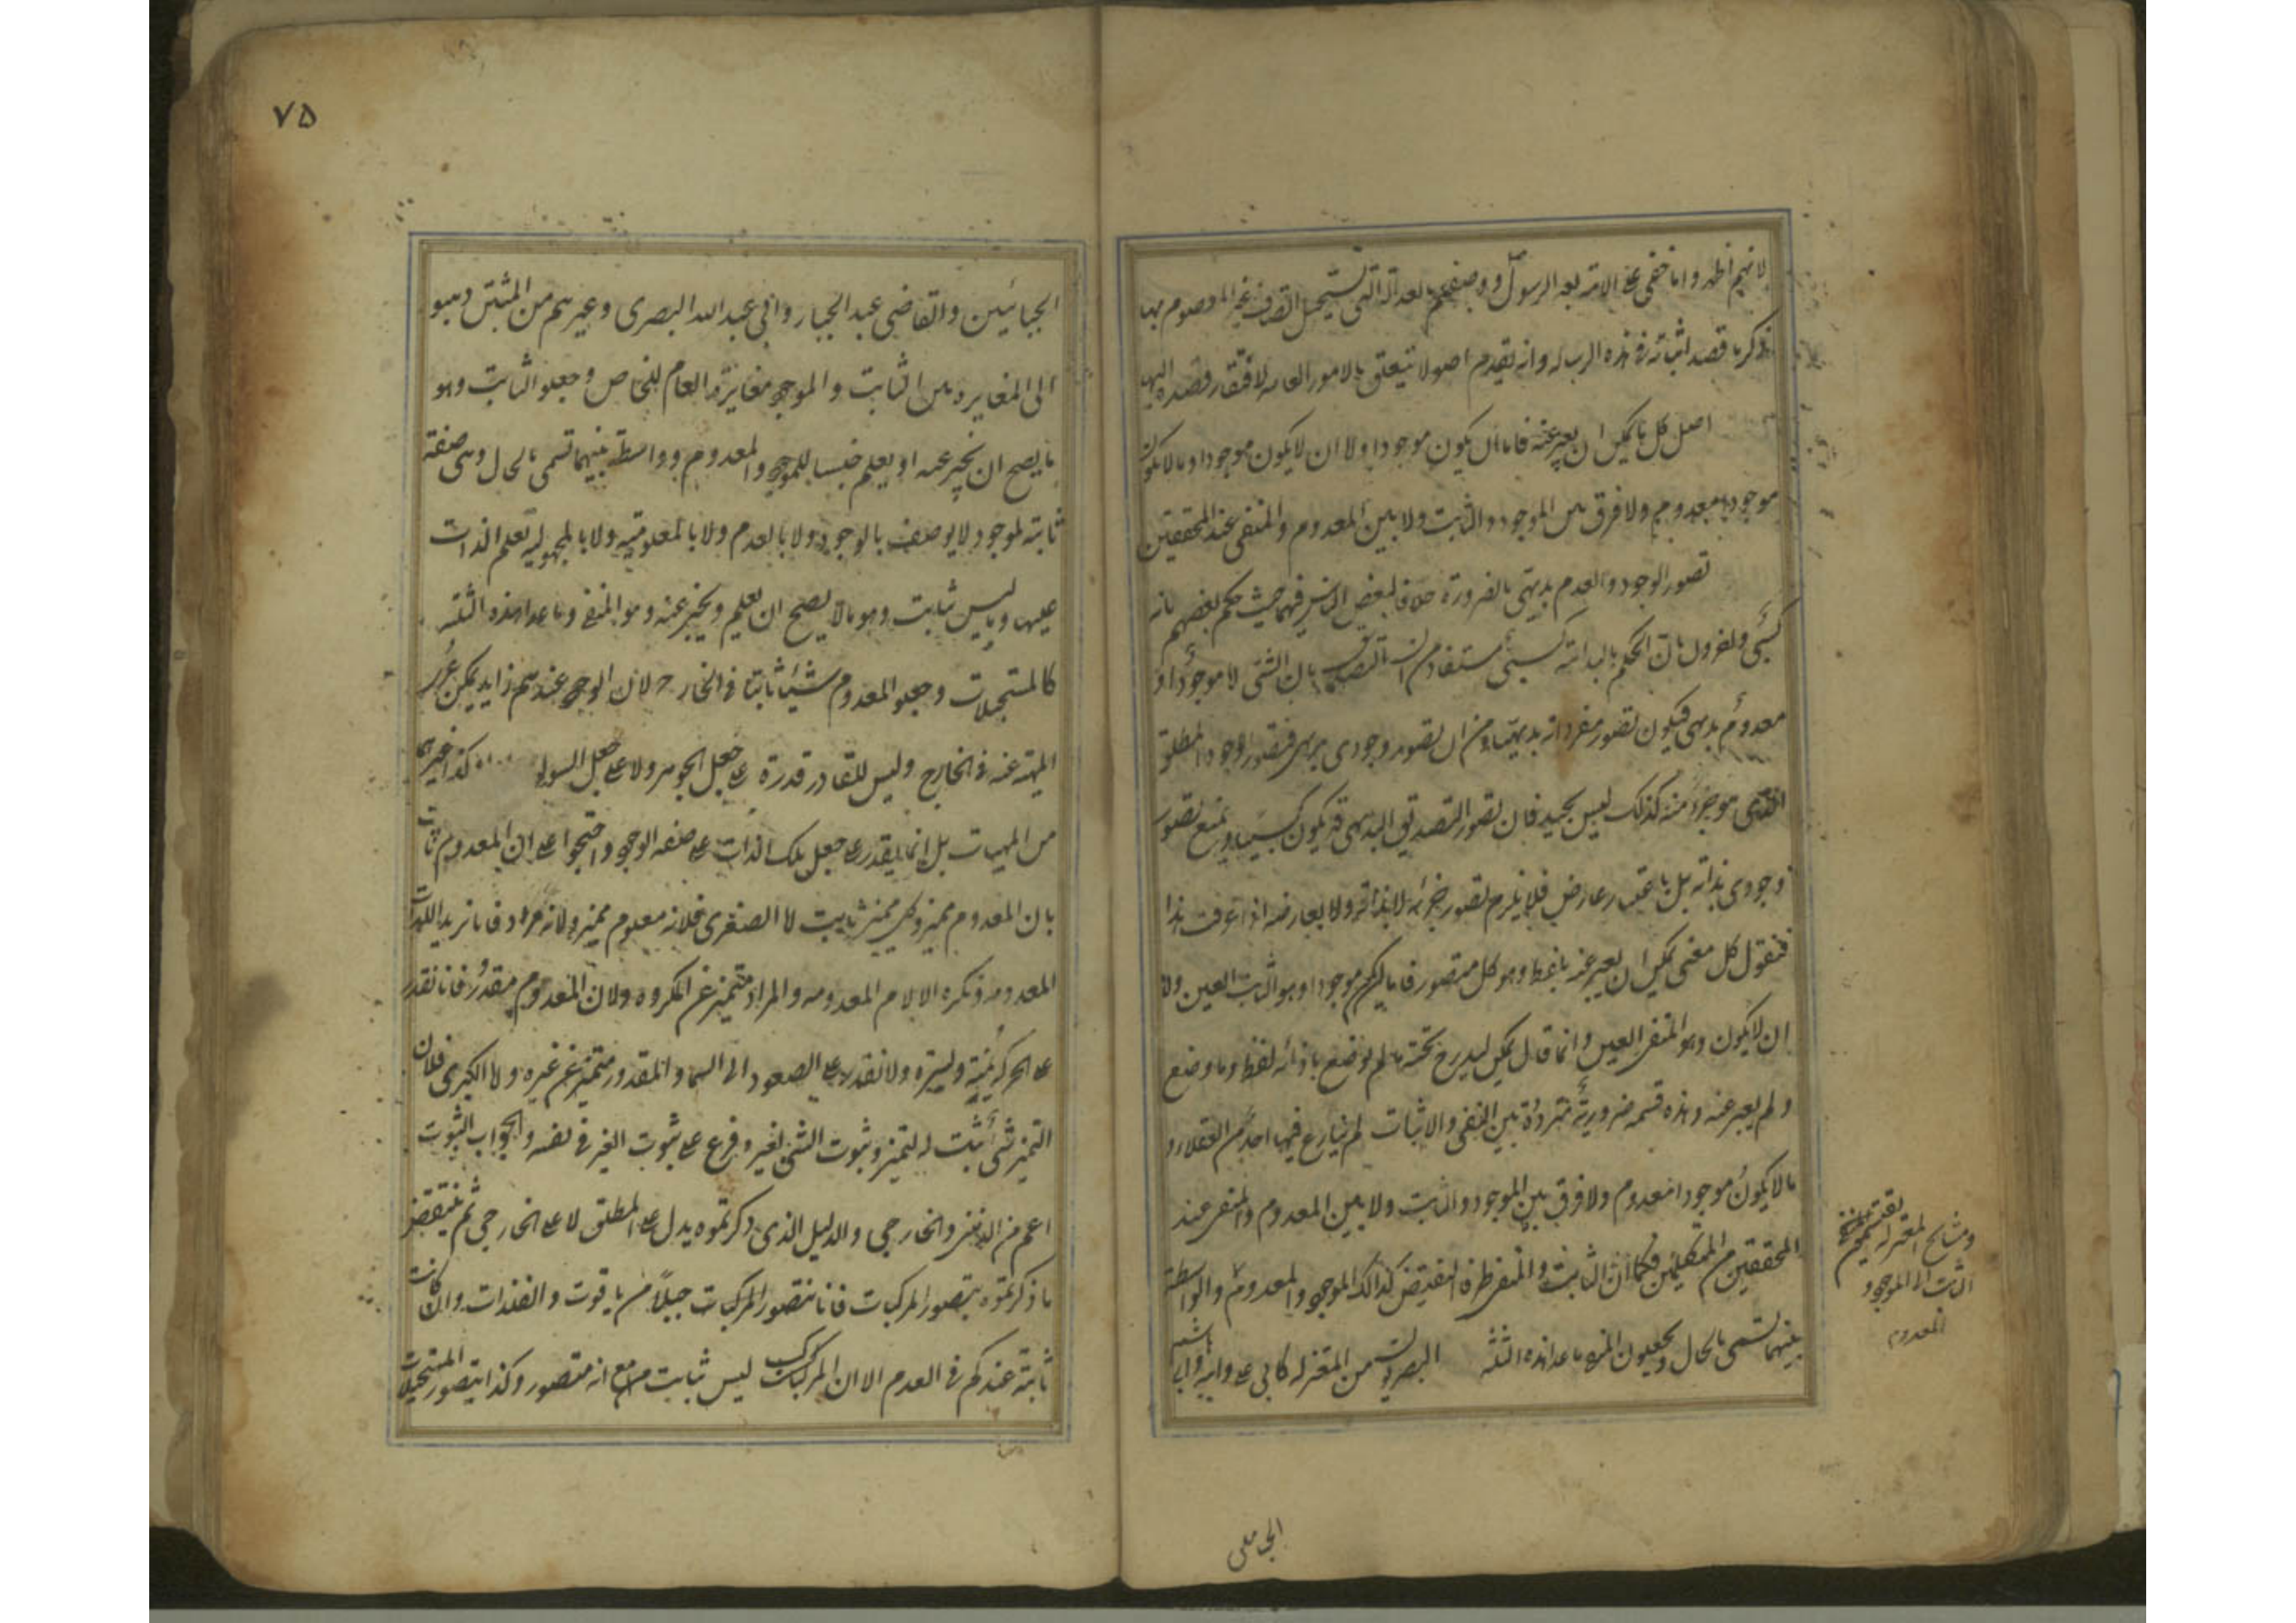 لانهم اظهر وانما خفى على الامة بعد الرسول ووصفهم بالعدالة التى تستحيل اتصاف غير المعصوم بها
ذكر ما قصد اثباته فى هذه الرساله وانه يقدم اصولا تتعلق بالامور العامه لافتقار قصده اليها
اصل كل ما يمكن ان يعبر عنه فاما ان يكون موجودا ولا ان لا يكون موجودا وما لا يكون
موجودا معدوم ولا فرق بين الموجود والثابت ولا بين المعدوم والمنفى عند المحققين
تصور الوجود والعدم بديهى بالضرورة خلافا لبعض الناس فيهما حيث حكم بعضهم بانه
كسبى والقول بان الحكم بالبداهة كسبى مستفاد من ان التصديق بان الشئ لا موجودا و
معدوم بديهى فيكون تصور مفرداته بديهيا ومن ان تصور وجودى بديهى فتصور الوجود المطلق
الذى هو جزء منه كذلك ليس بجيد فان تصور التصديق البديهى قد يكون كسبيا ويمنع تصور
وجودى بذاته بل باعتبار عارض فلا يلزم تصور جزئه لا بذاته ولا بعارضه اذا عرفت هذا
فنقول كل معنى يمكن ان يعبر عنه بلفظ وهو كل متصور فاما ان يكون موجودا وهو الثابت العين ولا
ان لا يكون وهو المنفى العين وانما قال يمكن ليدرج تحته ما لم يوضع بازائه لفظ وما وضع
ولم يعبر عنه وهذه قسمه ضرورية مترددة بين النفى والاثبات لم ينازع فيها احد من العقلاء و
ما لا يكون موجودا معدوم ولا فرق بين الموجود والثابت ولا بين المعدوم والمنفى عند
المحققين من المتكلمين فكما ان الثابت والمنفى طرفا النقيض كذلك الموجود والمعدوم والواسطة
بينهما تسمى بالحال ويجعلون المنفى ما عدا هذه الثلثة البصريون من المعتزله كابى على وابنه وابى
هاشم
ومشايخ المعتزله
الثابت الى الموجود و
المعدوم
الجبائيين
٧٥
الجبائيين والقاضى عبد الجبار وابى عبد الله البصرى وغيرهم من المثبتين ذهبو
الى المغايره بين الثابت والموجود مغايرة العام للخاص وجعلو الثابت وهو
ما يصح ان يخبر عنه او يعلم جنسا للموجود والمعدوم وواسطة بينهما تسمى بالحال وهى صفة
ثابتة لموجود لا يوصف بالوجود ولا بالعدم ولا بالمعلومية ولا بالمجهولية تعلم الذات
عليها وما ليس ثابت وهو ما لا يصح ان يعلم ويخبر عنه وهو المنفى وما عدا هذه الثلثه
كالمستحيلات وجعلو المعدوم شيئا ثابتا فى الخارج لان الوجود عندهم زايد يمكن
المهية عنه فى الخارج وليس للقادر قدرة على جعل الجوهر ولا على جعل السواد كذا غيرهما
من المهيات بل انما يقدر على جعل تلك الذات على صفه الوجود واحتجوا على ان المعدوم ثابت
بان المعدوم مميز وكل مميز ثابت لا الصغرى فلانه معلوم مميز ولانه مراد فانا نريد اللذات
المعدومه ونكره الالام المعدومه والمراد متميز عن المكروه ولان المعدوم مقدور فانا نقدر
على الحركه يمنة ويسرة ولا نقدر على الصعود الى السماء والمقدور متميز عن غيره ولا الكبرى فلان
التميز شى ثبت له التميز وثبوت الشئ لغير وفرع على ثبوت الغير فى نفسه والجواب الثبوت
اعم من الذهنى والخارجى والدليل الذى ذكرتموه يدل على المطلق لا على الخارجى ثم ينتقض
ما ذكرتموه بتصور المركبات فانا نتصور المركبات جبلا من ياقوت والمفردات وان كانت
ثابتة عندكم فى العدم الا ان المركبات ليس ثابت مع انه متصور وكذا يتصور المستحيلات